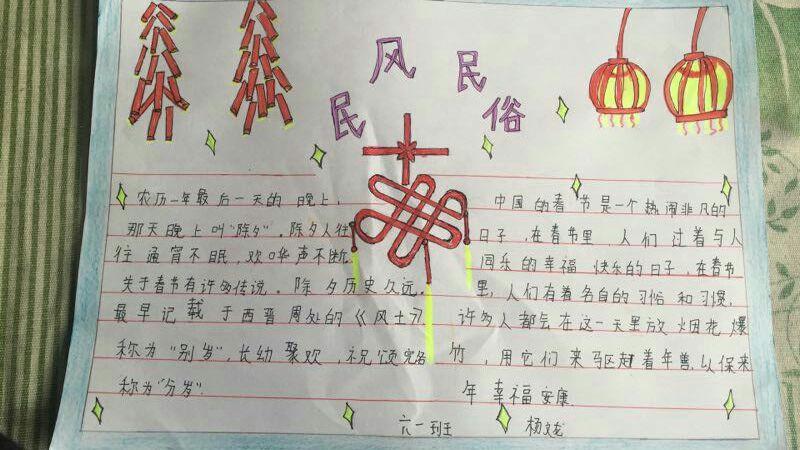 民风民俗
农历一年最后一天的晚上,
那天晚上叫“除夕”.除夕人往
往通宵不眠,欢哗声不断.
关于春节有许多传说。除夕历史久远,
最早记载于西晋周处的《风土记》
称为“别岁”,长幼聚欢,祝颂完备
称为“分岁”.
中国的春节是一个热闹非凡的
日子,在春节里人们过着与人
同乐的幸福快乐的日子,在春节
里,人们有着各自的习俗和习惯,
许多人都会在这一天里放烟花爆
竹,用它们来驱赶着年兽.以保来
年幸福安康.
六一班 杨文龙